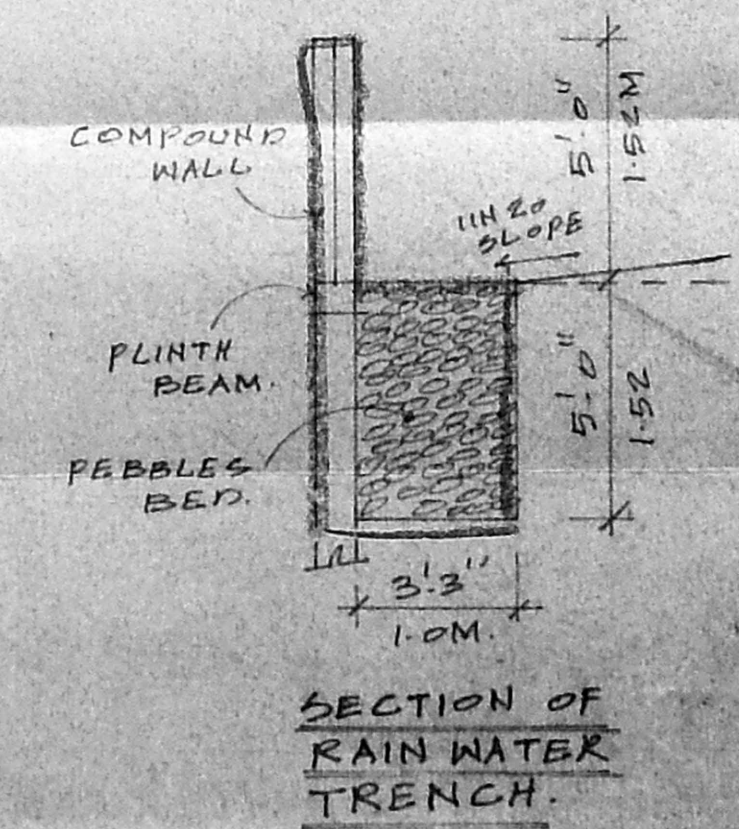 COMPOUND
WALL
5'-0"
1.52M
1IN 20
SLOPE
PLINTH
BEAM.
5'-0"
1.52
PEBBLES
BED.
3'-3"
1.0M.
SECTION OF
RAIN WATER
TRENCH.